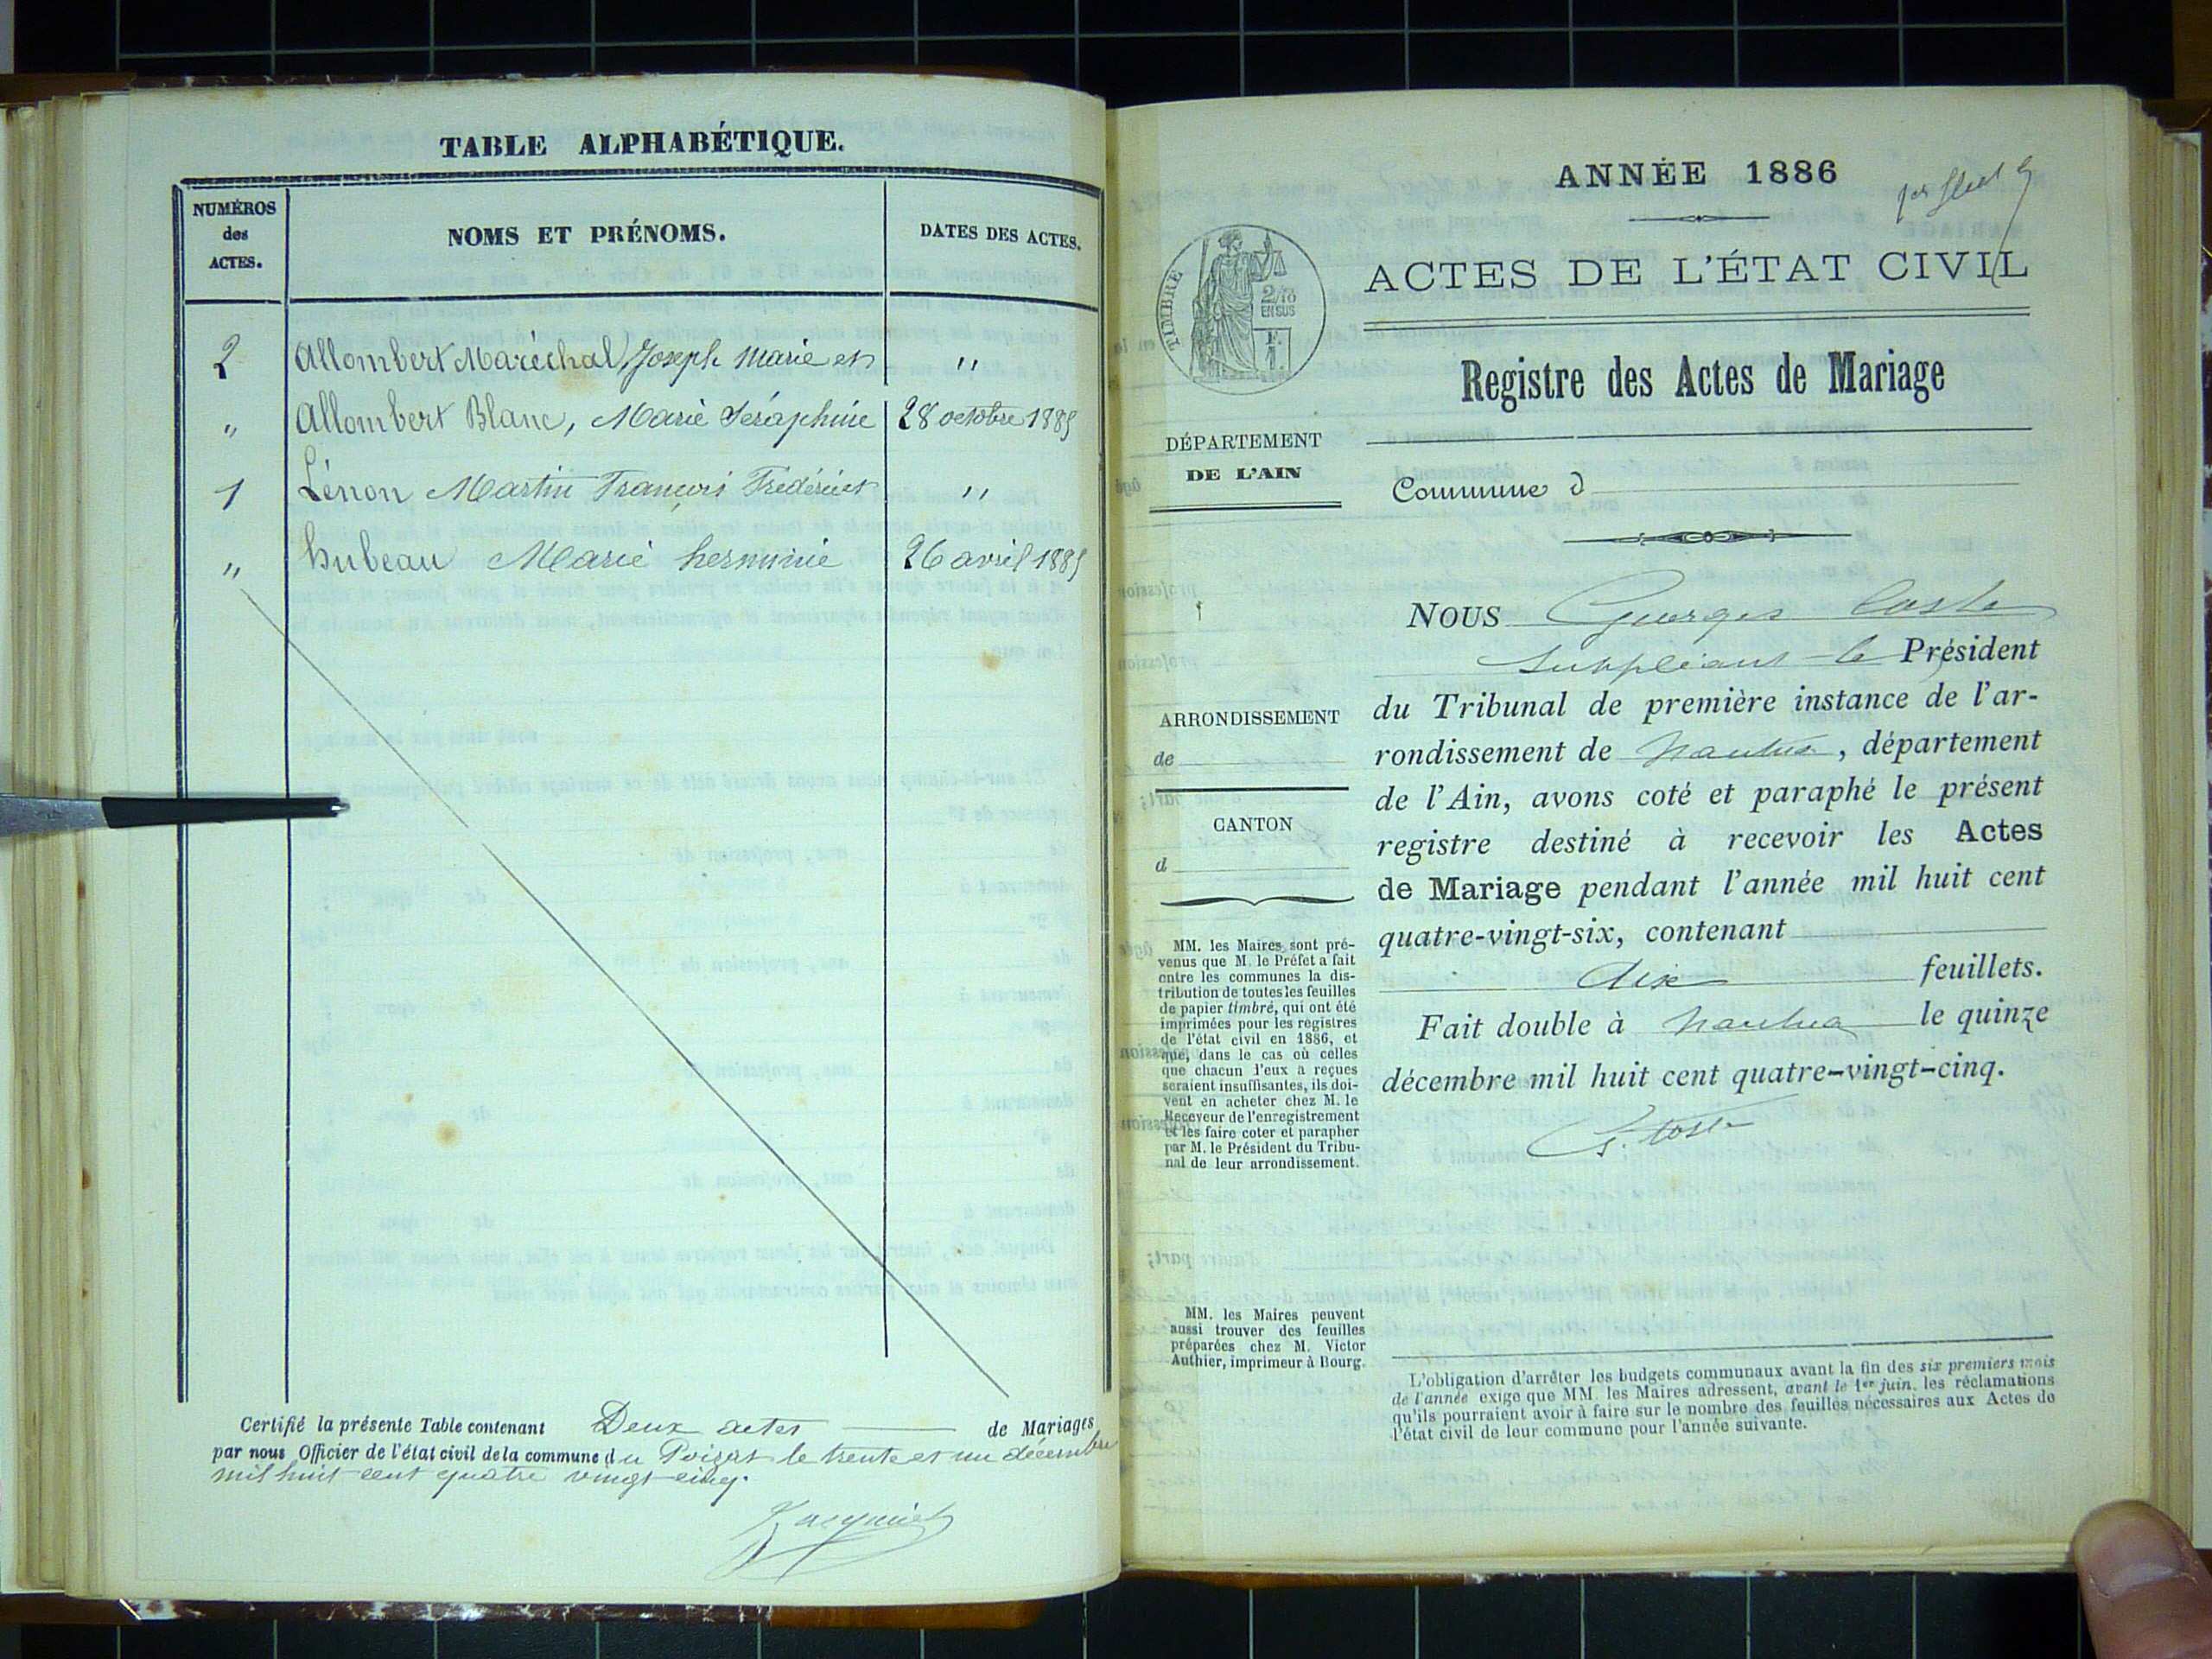 TABLE ALPHABÉTIQUE.
NUMÉROS
des
ACTES.
NOMS ET PRÉNOMS.
DATES DES ACTES.
2 Allombert Maréchal, Joseph Marie et "
" Allombert Blanc, Marie Séraphine 28 octobre 1885
1 Lénon Martin François Frédéric et "
" hubeau Marie herminie 26 avril 1885
Certifié la présente Table contenant Deux actes de Mariages
par nous Officier de l'état civil de la commune du Poizat le trente et un décembre
mil huit cent quatre vingt cinq.
ANNÉE 1886
ACTES DE L'ÉTAT CIVIL
TIMBRE
2/10
EN SUS
Registre des Actes de Mariage
DÉPARTEMENT
DE L'AIN
Commune d
NOUS Georges Coste
suppléant le Président
du Tribunal de première instance de l'ar-
rondissement de Nantua, département
de l'Ain, avons coté et paraphé le présent
registre destiné à recevoir les Actes
de Mariage pendant l'année mil huit cent
quatre-vingt-six, contenant
dix feuillets.
Fait double à Nantua le quinze
décembre mil huit cent quatre-vingt-cinq.
G. Coste
ARRONDISSEMENT
de
CANTON
d
MM. les Maires sont pré-
venus que M. le Préfet a fait
entre les communes la dis-
tribution de toutes les feuilles
de papier timbré, qui ont été
imprimées pour les registres
de l'état civil en 1886, et
que, dans le cas où celles
que chacun l'eux a reçues
seraient insuffisantes, ils doi-
vent en acheter chez M. le
Receveur de l'enregistrement
et les faire coter et parapher
par M. le Président du Tribu-
nal de leur arrondissement.
MM. les Maires peuvent
aussi trouver des feuilles
préparées chez M. Victor
Authier, imprimeur à Bourg.
L'obligation d'arrêter les budgets communaux avant la fin des six premiers mois
de l'année exige que MM. les Maires adressent, avant le 1er juin, les réclamations
qu'ils pourraient avoir à faire sur le nombre des feuilles nécessaires aux Actes de
l'état civil de leur commune pour l'année suivante.